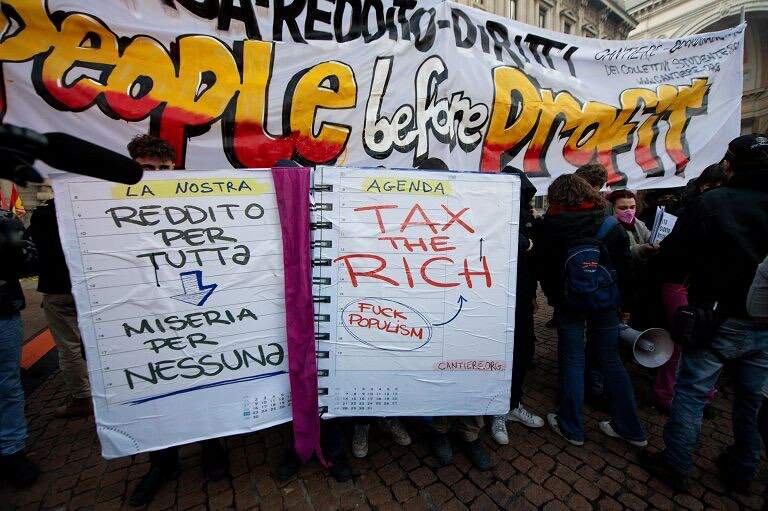 CASA-REDDITO-DIRITTI
People before Profit
CANTIERE - COORDINAMENTO
DEI COLLETTIVI STUDENTESCHI
WWW.CANTIERE.ORG
LA NOSTRA
REDDITO
PER
TUTTƏ
MISERIA
PER
NESSUNƏ
AGENDA
TAX
THE
RICH
FUCK
POPULISM
CANTIERE.ORG